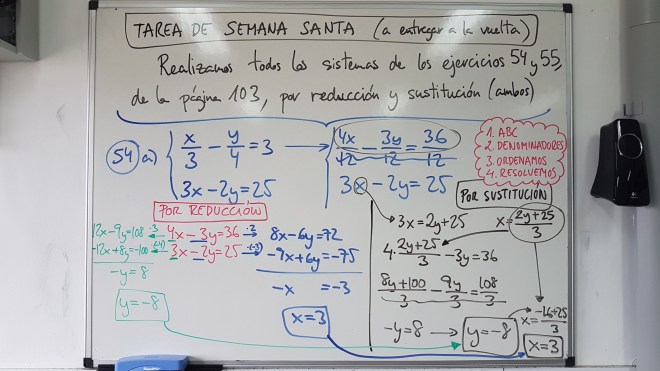 TAREA DE SEMANA SANTA (a entregar a la vuelta)
Realizamos todos los sistemas de los ejercicios 54 y 55,
de la página 103, por reducción y sustitución (ambos)
54 a) { x/3 - y/4 = 3 → { 4x/12 - 3y/12 = 36/12
3x - 2y = 25
3x - 2y = 25
1. ABC
2. DENOMINADORES
3. ORDENAMOS
4. RESOLVEMOS
POR REDUCCIÓN
12x - 9y = 108 ←·3 4x - 3y = 36 ·2→ 8x - 6y = 72
-12x + 8y = -100 ←·(-4) 3x - 2y = 25 ·(-3)→ -9x + 6y = -75
-y = 8
y = -8
-x = -3
x = 3
POR SUSTITUCIÓN
3x = 2y + 25
x = (2y+25)/3
4· (2y+25)/3 - 3y = 36
(8y+100)/3 - 9y/3 = 108/3
-y = 8 → y = -8
x = (-16+25)/3
x = 3